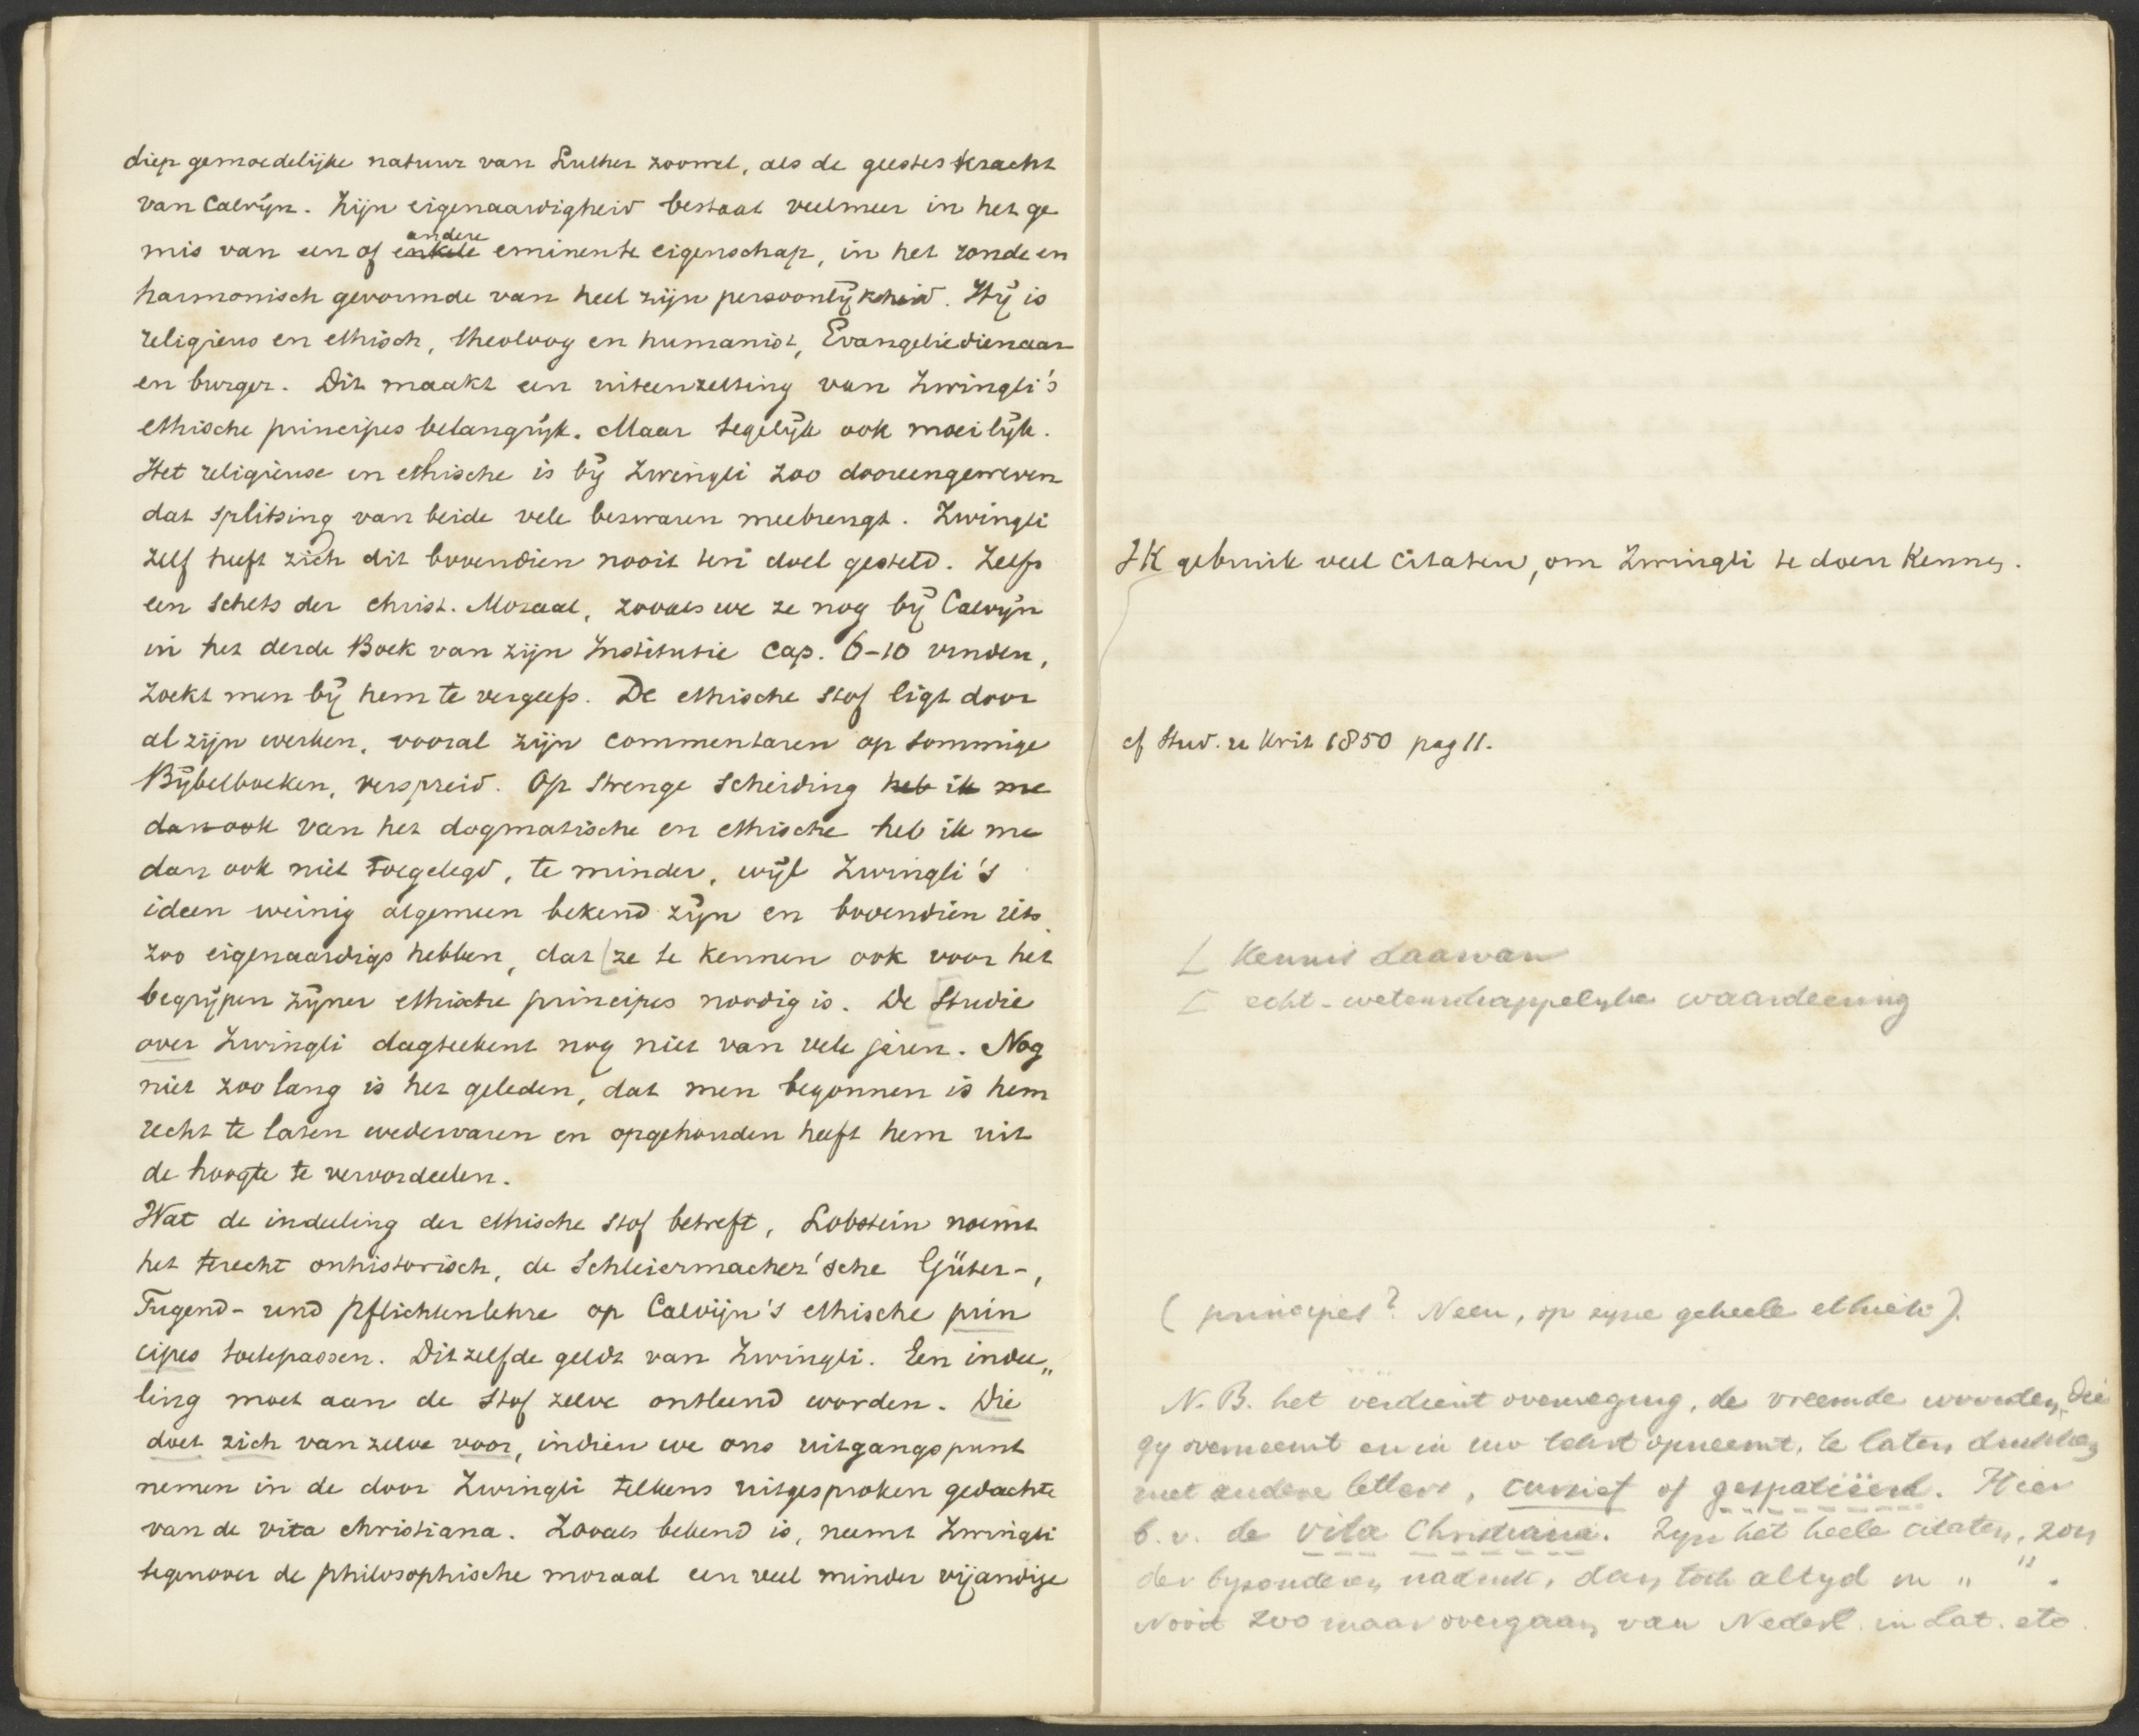 diep gemoedelijke natuur van Luther zoowel, als de geesteskracht
van Calvijn. Zijn eigenaardigheid bestaat veelmeer in het ge
mis van een of enkele andere eminente eigenschap, in het ronde en
harmonisch gevormde van heel zijn persoonlijkheid. Hij is
religieus en ethisch, theoloog en humanist, Evangeliedienaar
en burger. Dit maakt een uiteenzetting van Zwingli's
ethische principes belangrijk. Maar tegelijk ook moeilijk.
Het religieuse en ethische is bij Zwingli zoo dooreengeweven
dat splitsing van beide vele bezwaren meebrengt. Zwingli
zelf heeft zich dit bovendien nooit ten doel gesteld. Zelfs
een schets der christ. Moraal, zooals we ze nog bij Calvijn
in het derde Boek van zijn Institutie Cap. 6-10 vinden,
zoekt men bij hem te vergeefs. De ethische stof ligt door
al zijn werken, vooral zijn commentaren op sommige
Bijbelboeken, verspreid. Op strenge scheiding heb ik me
dan ook van het dogmatische en ethische heb ik me
dan ook niet toegelegd, te minder, wijl Zwingli's
ideen weinig algemeen bekend zijn en bovendien iets
zoo eigenaardigs hebben, dat [ze te kennen ook voor het
begrijpen zijner ethische principes noodig is. De [studie
over Zwingli dagteekent nog niet van vele jaren. Nog
niet zoo lang is het geleden, dat men begonnen is hem
recht te laten wedervaren en opgehouden heeft hem uit
de hoogte te veroordeelen.
Wat de indeeling der ethische stof betreft, Lobstein noemt
het terecht onhistorisch, de Schleiermacher'sche Güter-,
Tugend- und Pflichtenlehre op Calvijn's ethische prin
cipes toetepassen. Ditzelfde geldt van Zwingli. Een indee„
ling moet aan de stof zelve ontleend worden. Die
doet zich van zelve voor, indien we ons uitgangspunt
nemen in de door Zwingli telkens uitgesproken gedachte
van de vita christiana. Zooals bekend is, neemt Zwingli
tegenover de philosophische moraal een veel minder vijandige
Ik gebruik veel citaten, om Zwingli te doen kennen.
cf Stud. u Krit 1850 pag 11.
[ kennis daarvan
[ echt-wetenschappelijke waardeering
(principes? Neen, op zijne geheele ethiek).
N.B. het verdient overweging, de vreemde woorden, die
gij overneemt en in uw tekst opneemt, te laten drukken
met andere letters, cursief of gespatieerd. Hier
b.v. de vita Christiana. Zijn het heele citaten, zon
der bijzonderen nadruk, dan toch altijd in „ ".
Nooit zoo maar overgaan van Nederl. in Lat. etc.